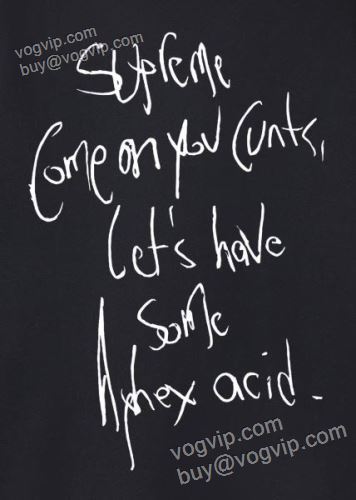 vogvip.com
buy@vogvip.com
Supreme
Come on you cunts,
let's have
some
Aphex acid.
vogvip.com
buy@vogvip.com